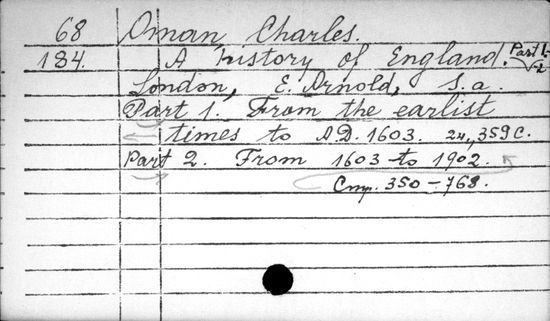 68 Oman, Charles.
184. A history of England. Part 1-2
London, E. Arnold, s.a.
Part 1. From the earlist
times to A.D. 1603. 24,359 c.
Part 2. From 1603 to 1902.
Cmp. 350-768.